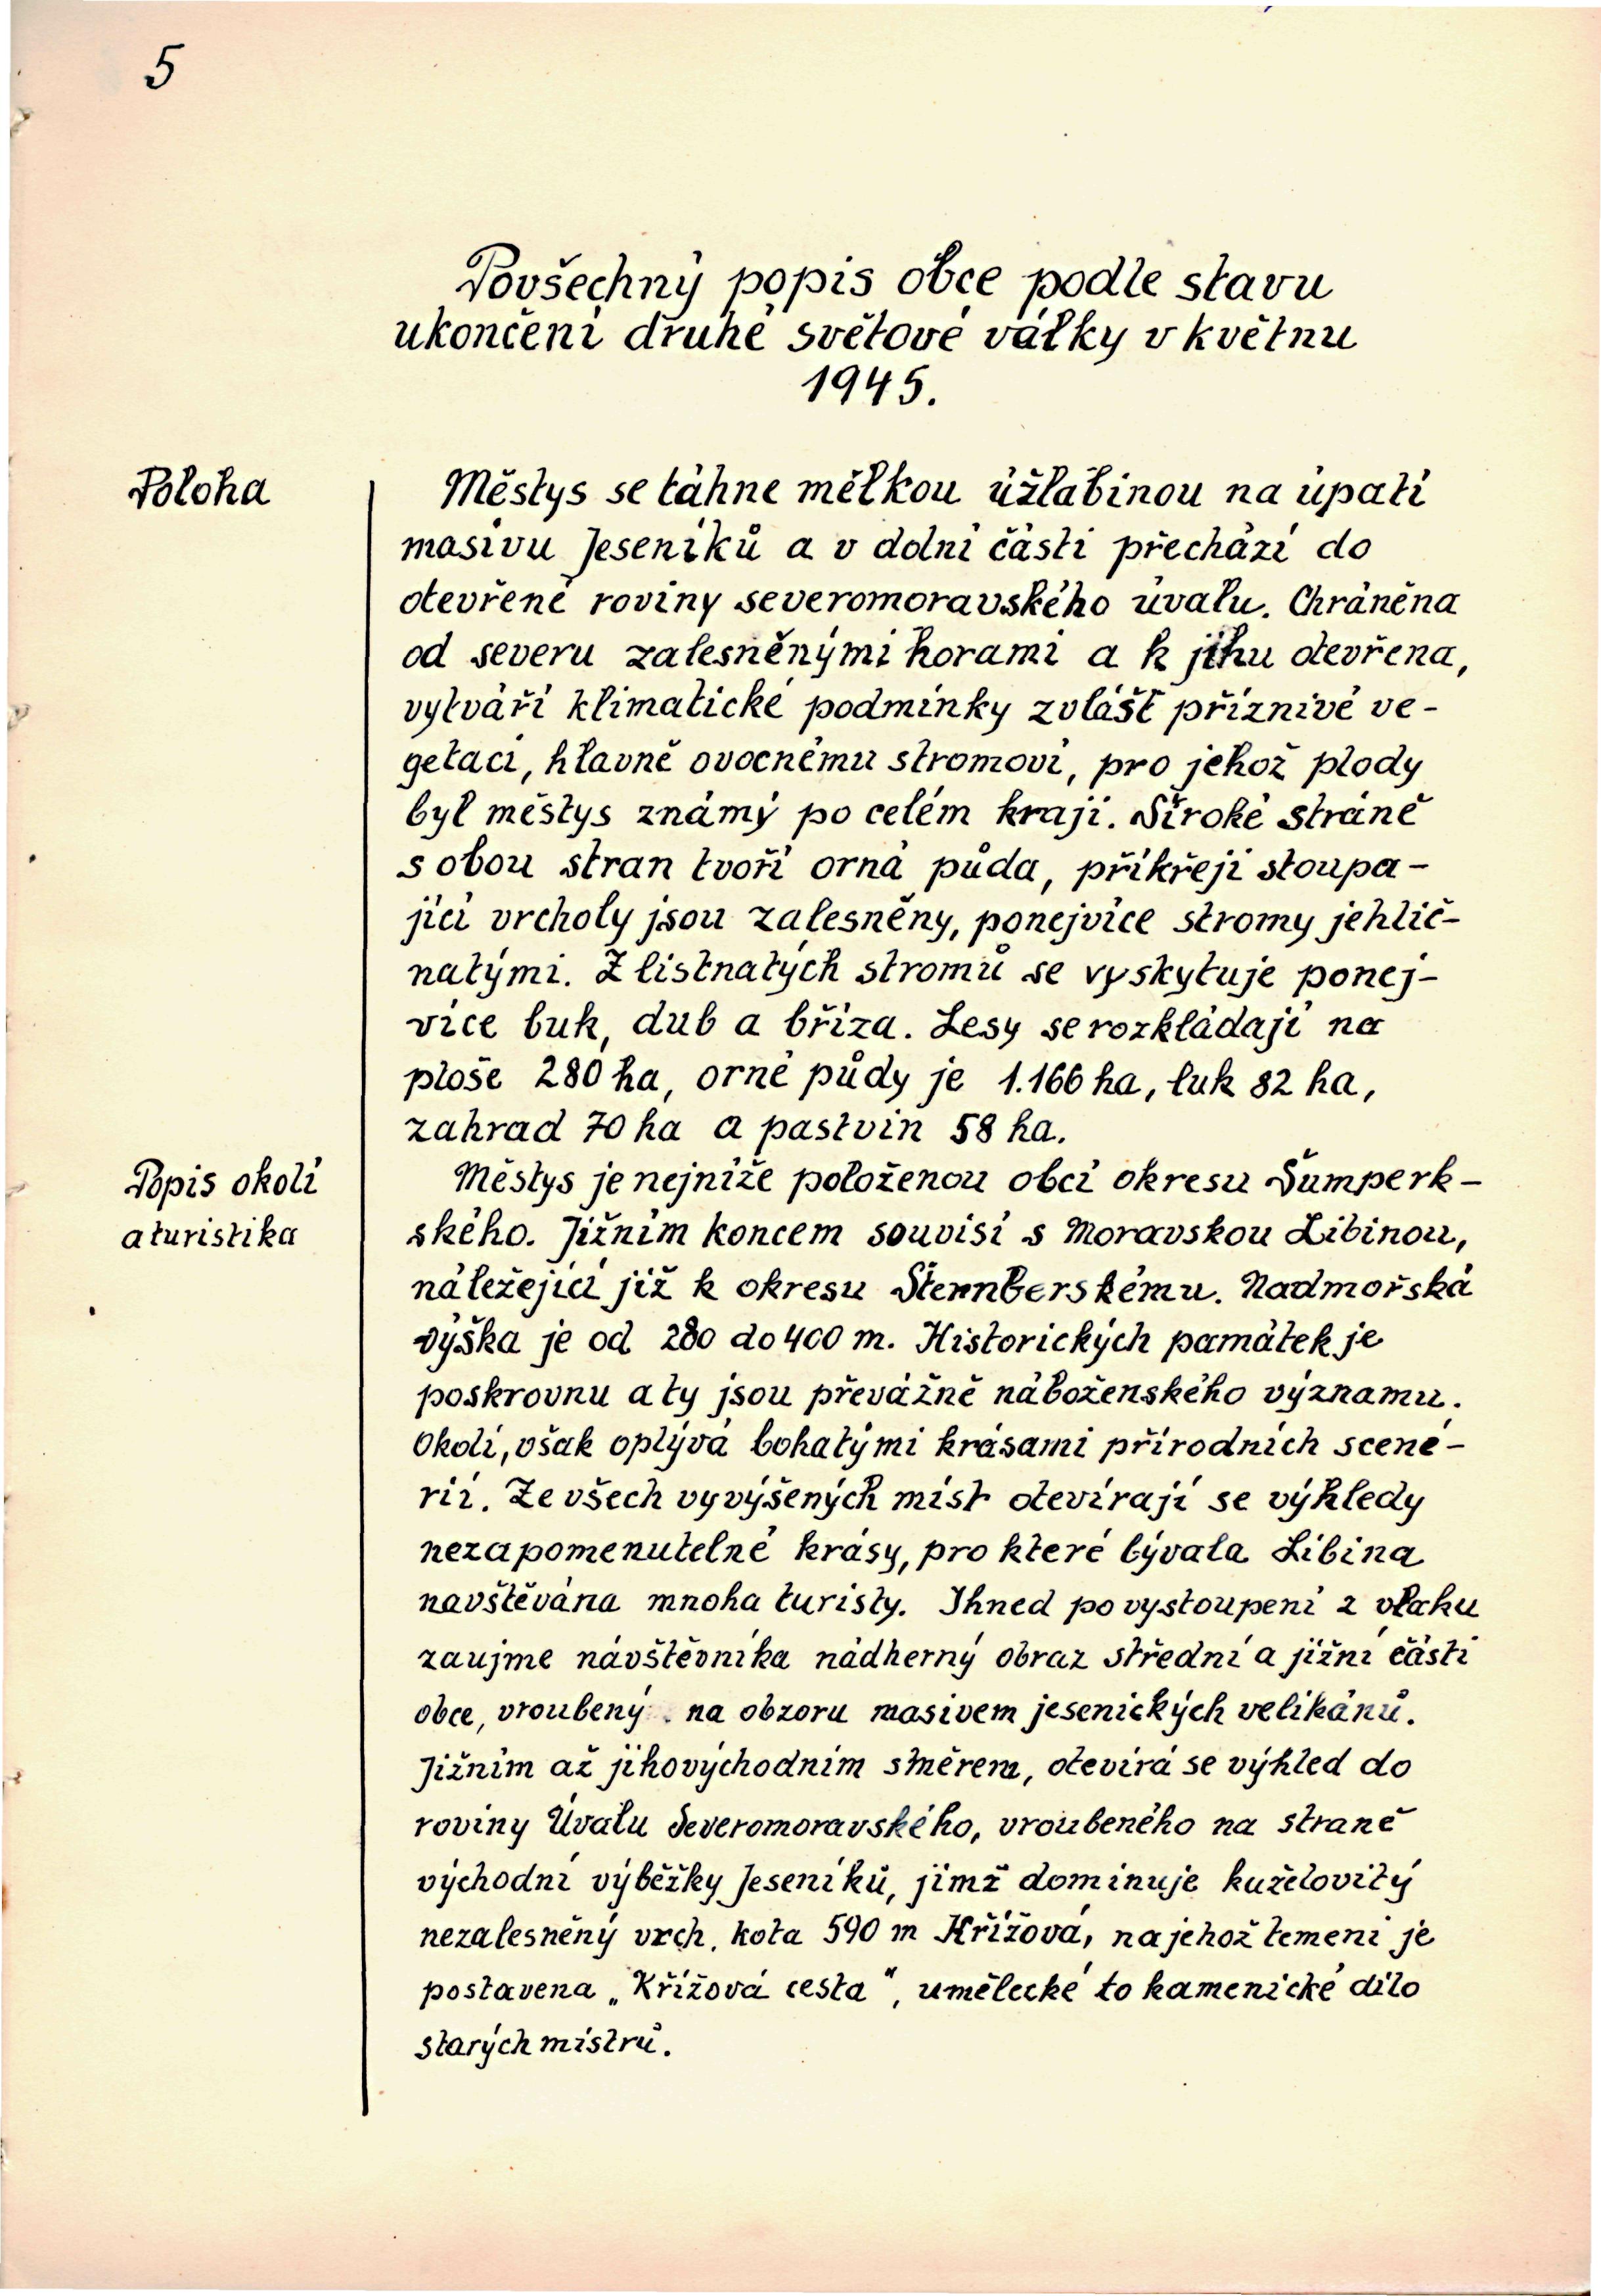 5
Povšechný popis obce podle stavu
ukončení druhé světové války v květnu
1945.
Poloha
Městys se táhne mělkou úžlabinou na úpatí
masivu Jeseníků a v dolní části přechází do
otevřené roviny severomoravského úvalu. Chráněna
od severu zalesněnými horami a k jihu otevřena,
vytváří klimatické podmínky zvlášť příznivé ve-
getaci, hlavně ovocnému stromoví, pro jehož plody
byl městys známý po celém kraji. Široké stráně
s obou stran tvoří orná půda, příkřeji stoupa-
jící vrcholy jsou zalesněny, ponejvíce stromy jehlič-
natými. Z listnatých stromů se vyskytuje ponej-
více buk, dub a bříza. Lesy se rozkládají na
ploše 280 ha, orné půdy je 1.166 ha, luk 82 ha,
zahrad 70 ha a pastvin 58 ha.
Popis okolí
a turistika
Městys je nejníže položenou obcí okresu Šumperk-
ského. Jižním koncem souvisí s Moravskou Libinou,
náležející již k okresu Šternberskému. Nadmořská
výška je od 280 do 400 m. Historických památek je
poskrovnu a ty jsou převážně náboženského významu.
Okolí, však oplývá bohatými krásami přírodních scené-
rií. Ze všech vyvýšených míst otevírají se výhledy
nezapomenutelné krásy, pro které bývala Libina
navštěvána mnoha turisty. Ihned po vystoupení z vlaku
zaujme návštěvníka nádherný obraz střední a jižní části
obce, vroubený na obzoru masivem jesenických velikánů.
Jižním až jihovýchodním směrem, otevírá se výhled do
roviny Úvalu Severomoravského, vroubeného na straně
východní výběžky Jeseníků, jimž dominuje kuželovitý
nezalesněný vrch, kota 590 m Křížová, na jehož temeni je
postavena „Křížová cesta", umělecké to kamenické dílo
starých mistrů.